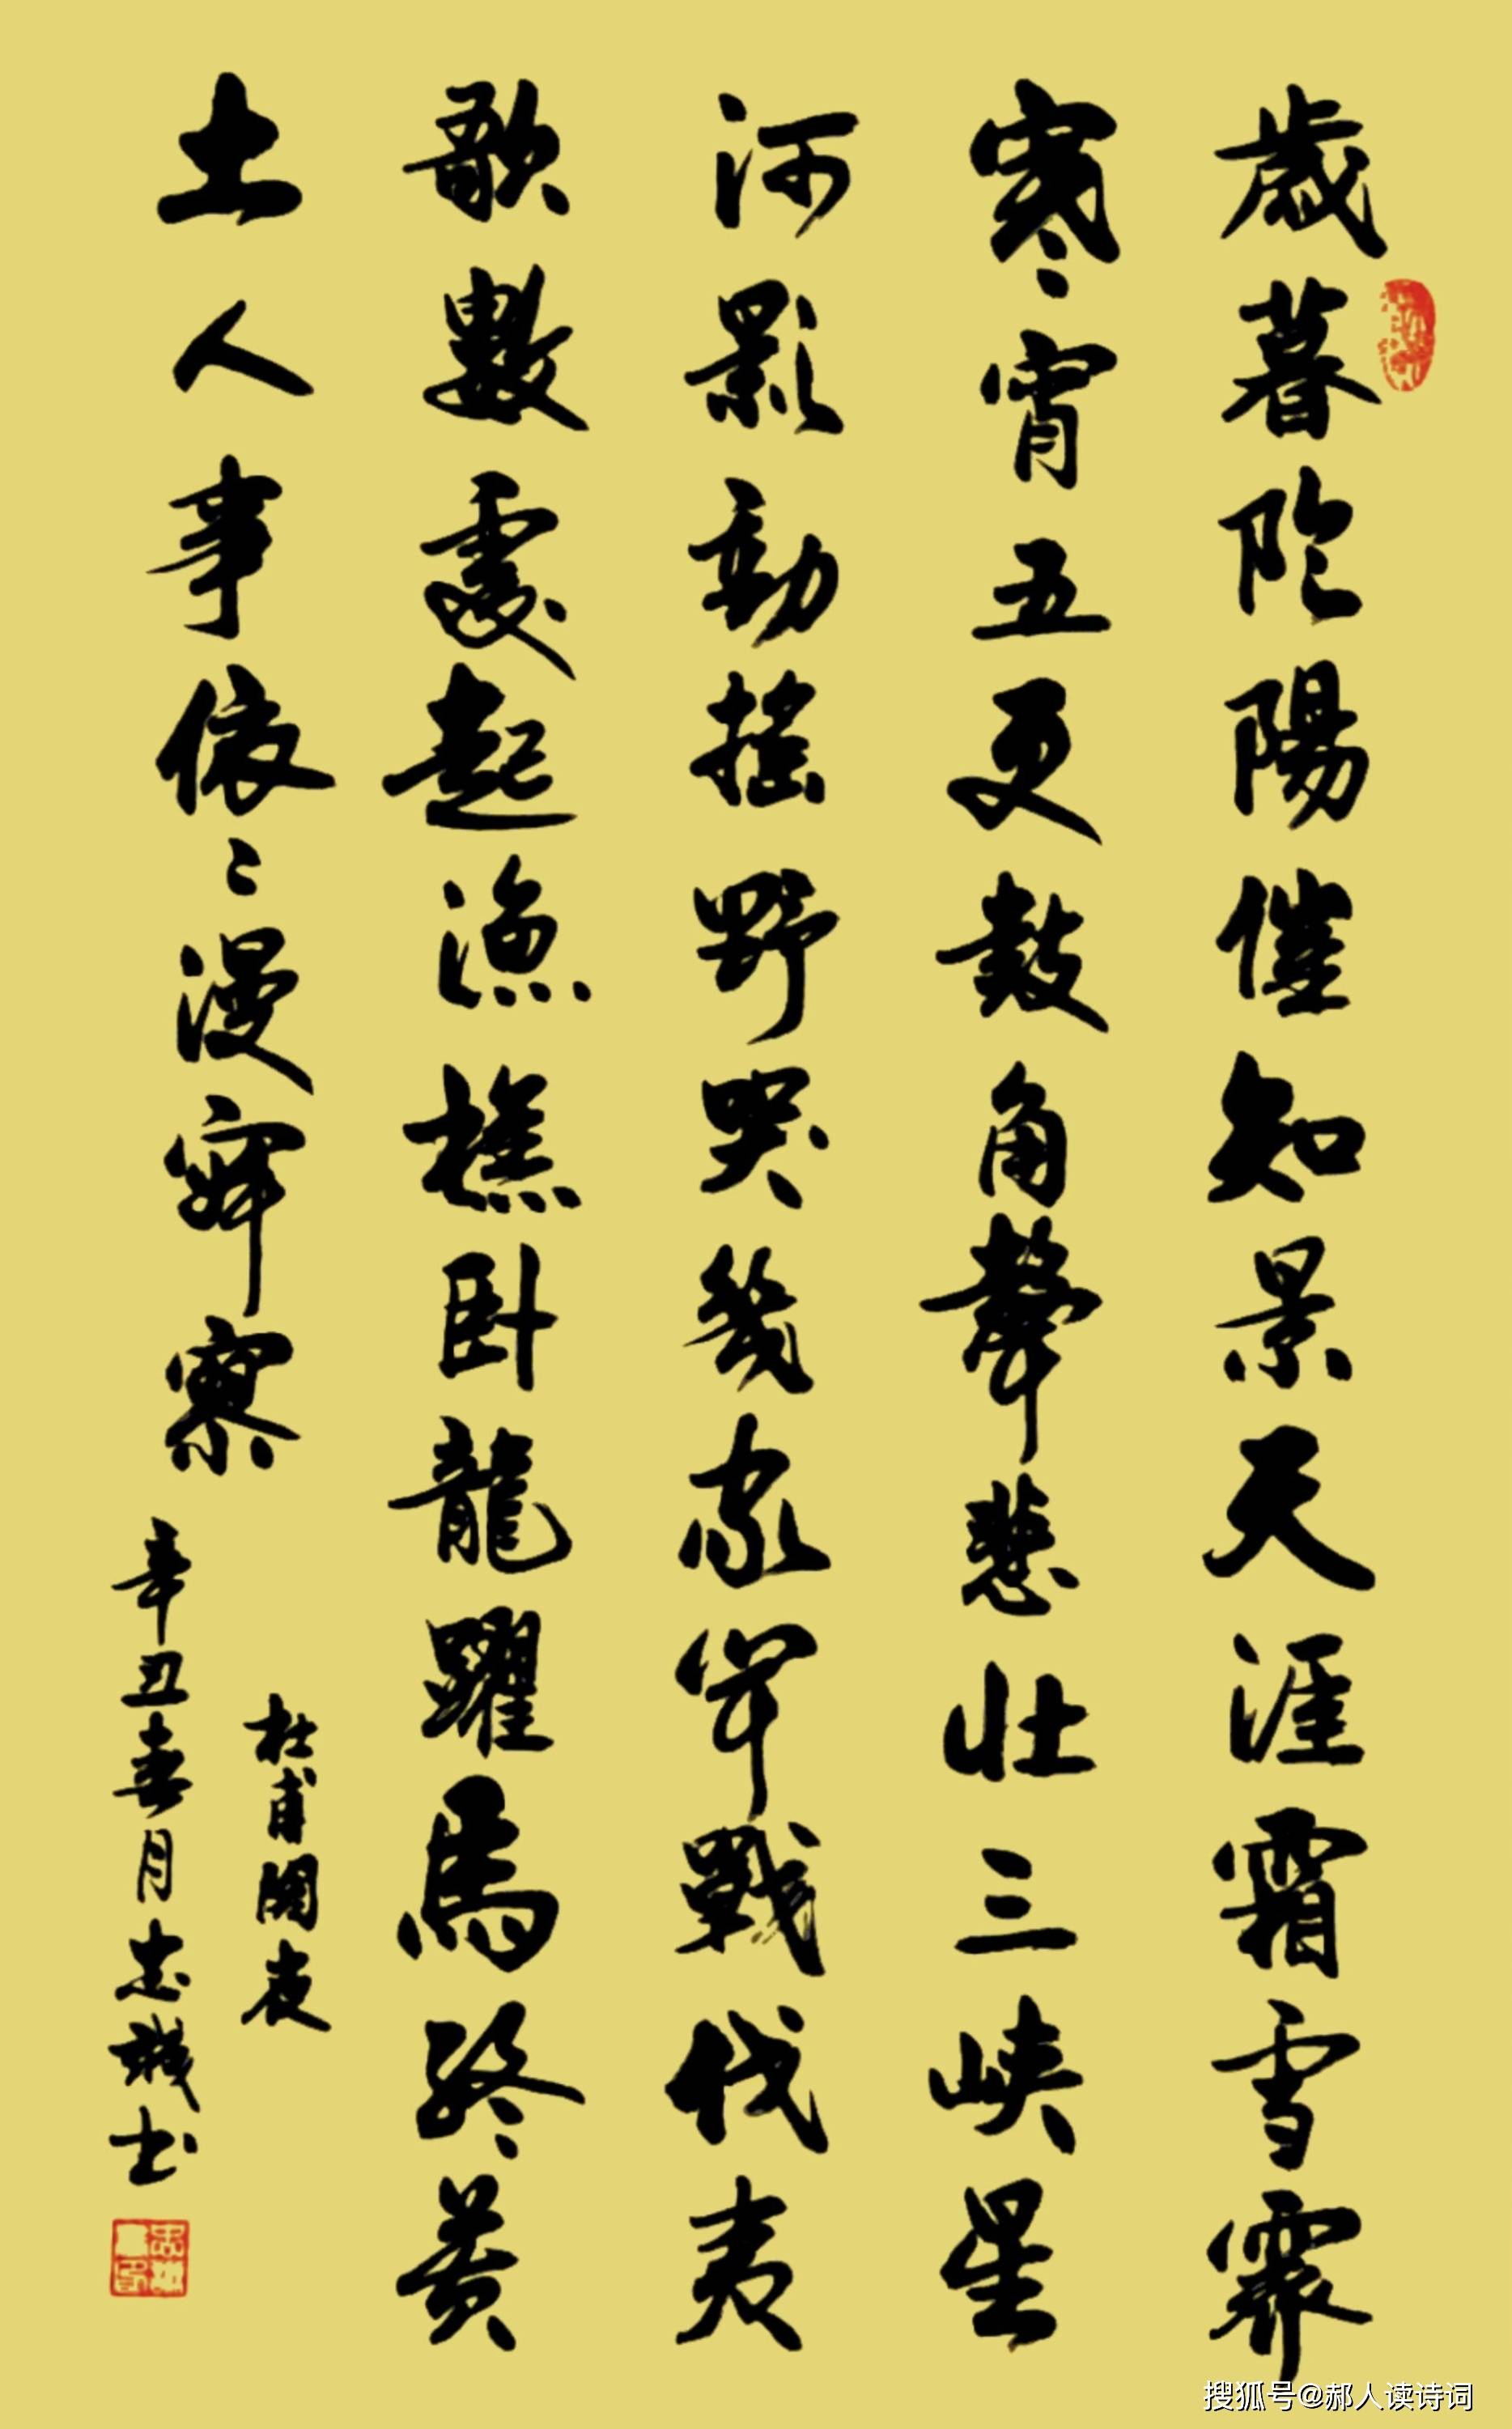 歲暮陰陽催知景天涯霜雪霽
寒宵五更鼓角聲悲壯三峽星
河影動搖野哭幾家聞戰伐夷
歌數處起漁樵臥龍躍馬終黃
土人事依〻漫寂寥
杜甫閣夜
辛丑春月志誠书
搜狐号@郝人读诗词